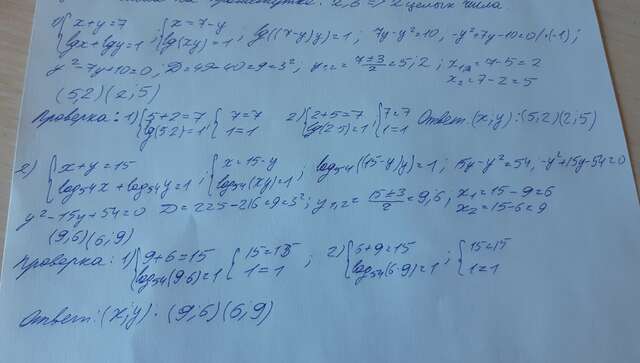 на промежутке: 2,6 => 2 целых числа.
1) { x+y=7 ; lgx+lgy=1 ; { x=7-y ; lg(xy)=1 ; lg((7-y)y)=1; 7y-y²=10, -y²+7y-10=0 |·(-1);
y²-7y+10=0; D=49-40=9=3²; y₁,₂=(7±3)/2=5;2; x₁=7-5=2
x₂=7-2=5
(5;2) (2;5)
Проверка: 1) { 5+2=7 ; lg(5·2)=1 ; { 7=7 ; 1=1 2) { 2+5=7 ; lg(2·5)=1 ; { 7=7 ; 1=1 Ответ: (x;y): (5;2)(2;5)
2) { x+y=15 ; log₅₄x+log₅₄y=1 ; { x=15-y ; log₅₄(xy)=1 ; log₅₄((15-y)y)=1; 15y-y²=54, -y²+15y-54=0
y²-15y+54=0 D=225-216=9=3²; y₁,₂=(15±3)/2=9;6, x₁=15-9=6
x₂=15-6=9
(9;6) (6;9)
Проверка: 1) { 9+6=15 ; log₅₄(9·6)=1 { 15=15 ; 1=1 ; 2) { 6+9=15 ; log₅₄(6·9)=1 ; { 15=15 ; 1=1
Ответ: (x;y): (9;6)(6;9)